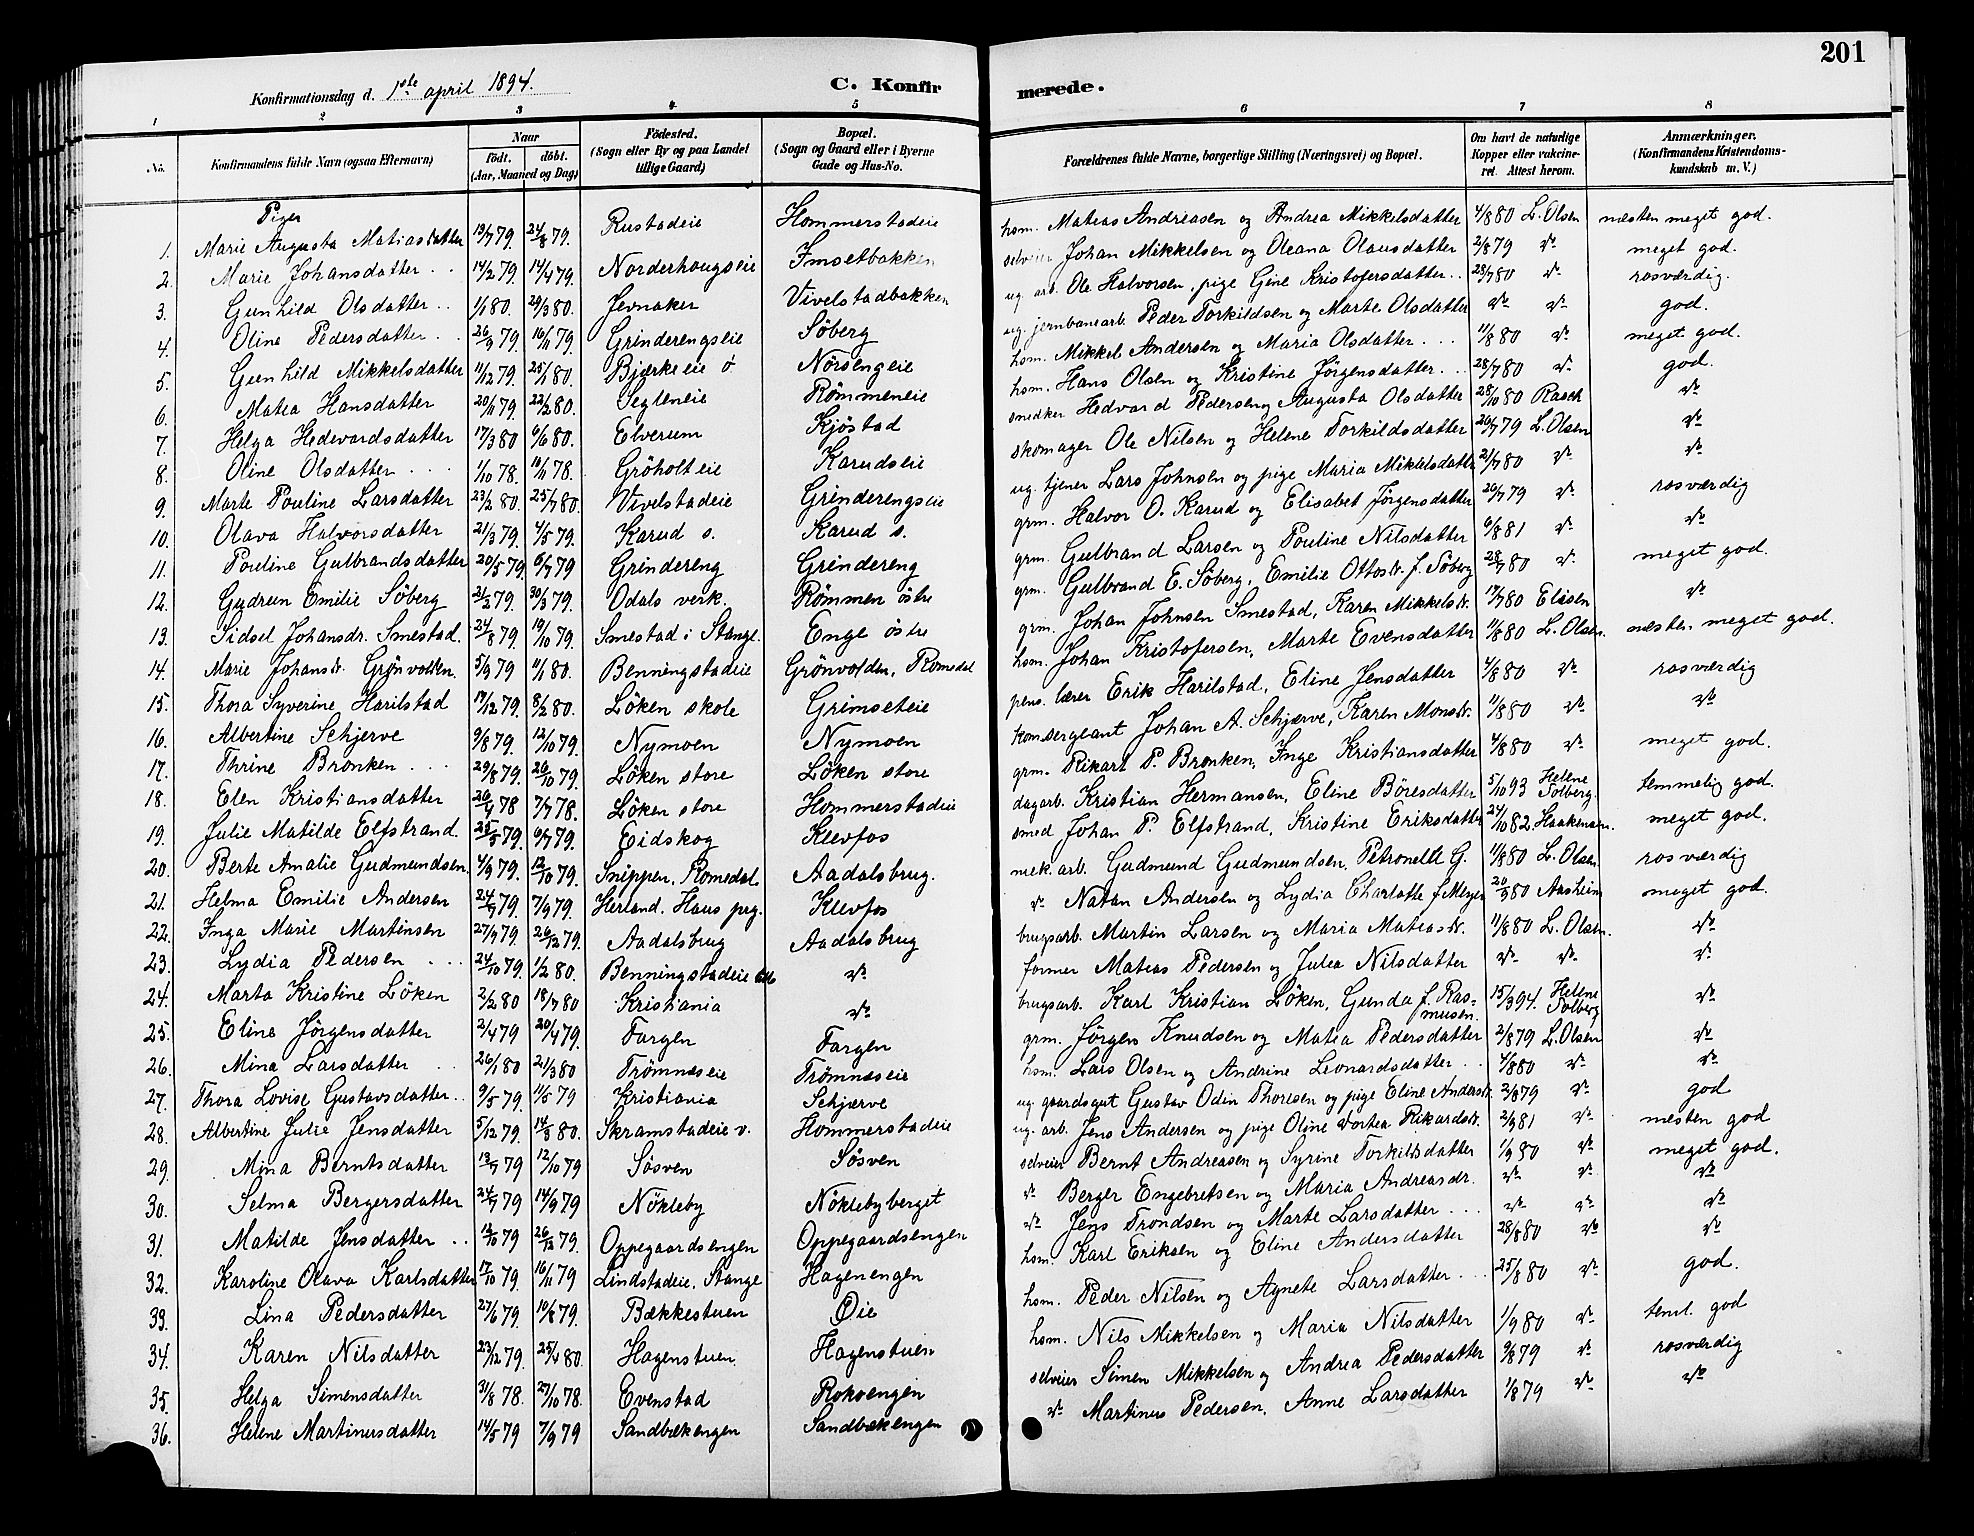 201
Konfirmationsdag d. 1ste april 1894. C. Konfir merede.
1 2 3 4 5 6 7 8
No. Konfirmandens fulde Navn (ogsaa Efternavn) Naar født. døbt. (Aar, Maaned og Dag) Fødested. (Sogn eller By og paa Landet tillige Gaard) Bopæl. (Sogn og Gaard eller i Byerne Gade og Hus-No. Forældrenes fulde Navne, borgerlige Stilling (Næringsvei) og Bopæl. Om havt de naturlige Kopper eller vakcineret. Attest herom. Anmærkninger. (Konfirmandens Kristendomskundskab m. V.)
Piger
1. Marie Augusta Matiasdatter 19/7 79. 24/8 79. Rustadeie Hommerstadeie hsm. Mateas Andreasen og Andrea Mikkelsdatter 4/8 80 L. Olsen næsten meget god.
2. Marie Johansdatter 14/2 79. 14/4 79. Norderhougseie Imsetbakken selveier Johan Mikkelsen og Oleana Olausdatter 2/8 79 do meget god.
3. Gunhild Olsdatter 1/1 80. 29/3 80. Jevnaker Vivelstadbakken ug. arb. Ole Halvorsen, pige Gine Kristofersdatter 28/7 80 do rosværdig.
4. Oline Pedersdatter 26/9 79. 16/11 79. Grinderengseie Søberg ug. jernbanearb. Peder Torkildsen og Marte Olsdatter do do god.
5. Gunhild Mikkelsdatter 11/12 79. 25/1 80. Bjærkeeie ø Nörsengeie hsm. Mikkel Andersen og Maria Olsdatter 11/8 80 do meget god.
6. Matea Hansdatter 20/11 79. 22/2 80. Segleneie Römmeneie hsm. Hans Olsen og Kristine Jörgensdatter 28/7 80 do god.
7. Helga Hedevardsdatter 17/3 80 6/6 80. Elverum Kjöstad snedker Hedvard Pedersen og Augusta Olsdatter 28/10 80 Rasch do
8. Oline Olsdatter 1/10 78. 10/11 78. Gröholteie Karudseie skomager Ole Nilsen og Helene Torkildsdatter 26/7 79 L. Olsen do
9. Marte Pouline Larsdatter 23/2 80. 25/7 80. Vivelstadeie Grinderengseie ug. tjener Lars Johnsen og pige Maria Mikkelsdatter 21/7 80 do do
10. Olava Halvorsdatter 21/3 79. 4/5 79. Karud s. Karud s. grm. Halvor O. Karud og Elisabet Jörgensdatter 26/7 79 do rosværdig
11. Pouline Gulbrandsdatter 20/5 79. 6/7 79 Grindereng Grindereng grm. Gulbrand Larsen og Pouline Nilsdatter 6/8 81 do do
12. Gudrun Emilie Söberg 21/2 79. 30/3 79. Odals verk. Römmen östre grm. Gulbrand E. Söberg, Emilie Ottosdr. f. Söberg 28/7 80 do meget god.
13. Sidsel Johansdr. Smestad. 24/8 79. 19/10 79. Smestad i Stange. Enge östre grm. Johan Johnsen Smestad, Karen Mikkelsdr. 17/7 80 Eliesen do
14. Marie Johansdr. Grönvolden. 5/9 79 11/1 80. Benningstadeie Grönvolden, Romedal hsm. Johan Kristofersen, Marte Evensdatter 11/8 80 L. Olsen. næsten meget god.
15. Thora Syverine Harilstad 19/12 79. 8/2 80. Löken skole Grimseteie pens. lærer Erik Harilstad, Eline Jensdatter 4/8 80 do rosværdig
16. Albertine Schjerve 9/8 79. 12/10 79. Nymoen Nymoen komsergeant Johan A. Schjærve, Karen Monsdr. 11/8 80 do do
17. Thrine Bronken 29/8 79. 26/10 79. Löken store Löken store grm. Rikart P. Bronken, Inge Kristiansdatter 4/8 80 do meget god.
18. Elen Kristiansdatter 26/4 78 7/7 78. Löken store Hommerstadeie dagarb. Kristian Hermansen, Eline Böresdatter 5/10 93 Helene Solberg. temmelig god.
19. Julie Matilde Elfstrand. 25/5 79. 6/7 79. Eidskog Klevfos smed Johan P. Elfstrand, Kristine Eriksdatter 24/10 82. Haakensen. meget god.
20. Berte Amalie Gudmundsen. 4/9 79. 12/10 79. Snippen, Romedal. Aadalsbrug. mek. arb. Gudmund Gudmundsen, Petronelle G. 11/8 80 L. Olsen. rosværdig
21. Helma Emilie Andersen 24/7 79 7/9 79. Herland. Haus prg. Klevfos do Natan Andersen og Lydia Charlotte f. Meyer 20/9 80 Aasheim meget god.
22. Inga Marie Martinsen 27/9 79. 26/12 79. Aadalsbrug Aadalsbrug brugsarb. Martin Larsen og Maria Mateasdr. 11/8 80 L. Olsen. do
23. Lydia Pedersen 24/10 79. 1/2 80. Benningstadeie do former Mateas Pedersen og Julea Nilsdatter do do do
24. Marta Kristine Löken 2/2 80 18/7 80 Kristiania do brugsarb. Karl Kristian Löken, Gunda f. Rasmusen. 15/3 94. Helene Solberg do
25. Eline Jörgensdatter 2/4 79 20/4 79. Fargen Fargen grm. Jörgen Knudsen og Matea Pedersdatter 2/8 79 L. Olsen do
26. Mina Larsdatter 26/1 80 21/3 80 Trömnæseie Trömnæseie hsm. Lars Olsen og Andrine Leonardsdatter 4/8 80 do do
27. Thora Lovise Gustavsdatter 9/5 79. 11/5 79 Kristiania Schjærve ug. gaardsgut Gustav Odin Thoresen og pige Eline Andersdr. 2/8 79 do god
28. Albertine Julie Jensdatter 5/12 79. 14/3 80. Skramstadeie v. Hommerstadeie ug. arb. Jens Andersen og pige Oline Dortea Rikardsdr. 2/9 81 do næsten god
29. Mina Berntsdatter 13/7 79 12/10 79 Sösven Sösven selveier Bernt Andreasen og Syrine Torkildsdatter 1/9 80 do meget god.
30. Selma Bergersdatter 24/7 79 14/9 79 Nökleby Nöklebyberget do Berger Engebretsen og Maria Andreasdr. do do do
31. Matilde Jensdatter 12/10 79 26/12 79. Oppegaardsengen Oppegaardsengen do Jens Trondsen og Marte Larsdatter do do do
32. Karoline Olava Karlsdatter 17/10 79. 16/11 79 Lindstadeie, Stange Hagenengen hsm. Karl Eriksen og Eline Andersdatter 28/8 80 do do
33. Lina Pedersdatter 27/6 79. 10/8 79. Bækkestuen Øie hsm. Peder Nilsen og Agnete Larsdatter 25/8 80 do god.
34. Karen Nilsdatter 23/12 79. 25/4 80. Hagenstuen. Hagenstuen hsm. Nils Mikkelsen og Maria Nilsdatter 1/9 80 do teml. god
35. Helga Simensdatter 31/8 78. 27/10 78. Evenstad Rokoengen selveier Simen Mikkelsen og Andrea Pedersdatter 9/8 79 do rosværdig
36. Helene Martinusdatter 14/5 79 7/9 79 Sandbækengen Sandbækengen do Martinus Pedersen, Anne Larsdatter 1/8 79 do do